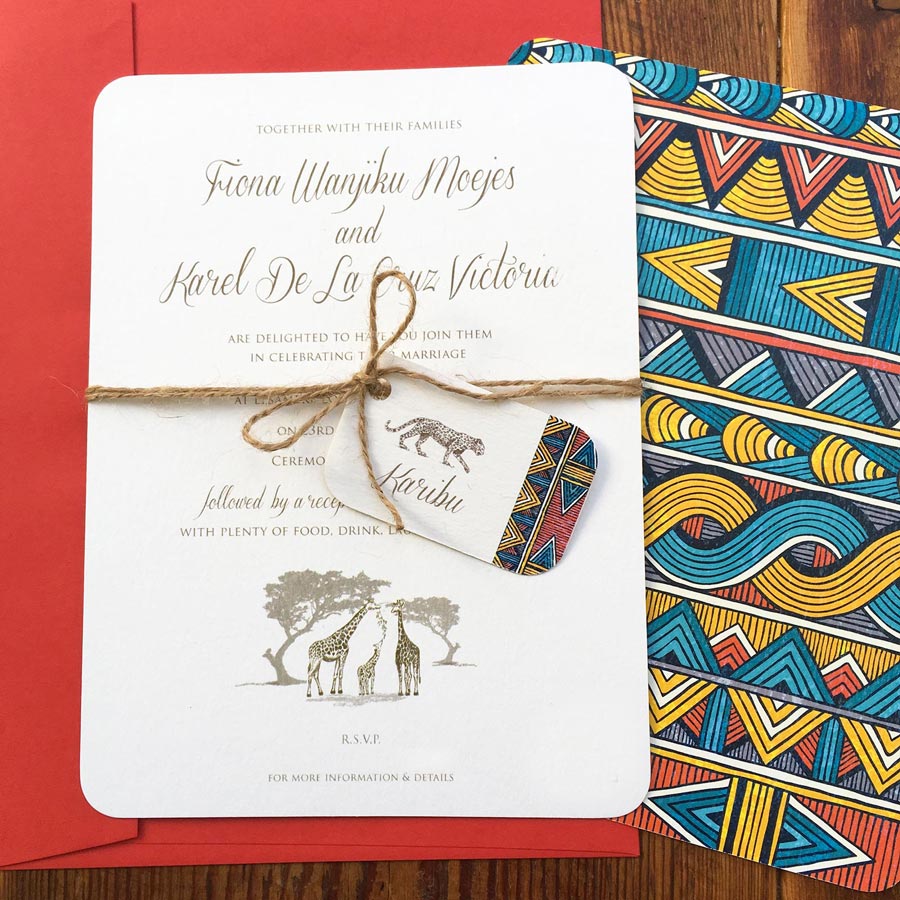 TOGETHER WITH THEIR FAMILIES
Fiona Wanjiku Moejes
and
Karel De La Cruz Victoria
ARE DELIGHTED TO HAVE YOU JOIN THEM
IN CELEBRATING MARRIAGE
AT
ON 23RD
followed by a
WITH PLENTY OF FOOD, DRINK,
Karibu
R.S.V.P.
FOR MORE INFORMATION & DETAILS